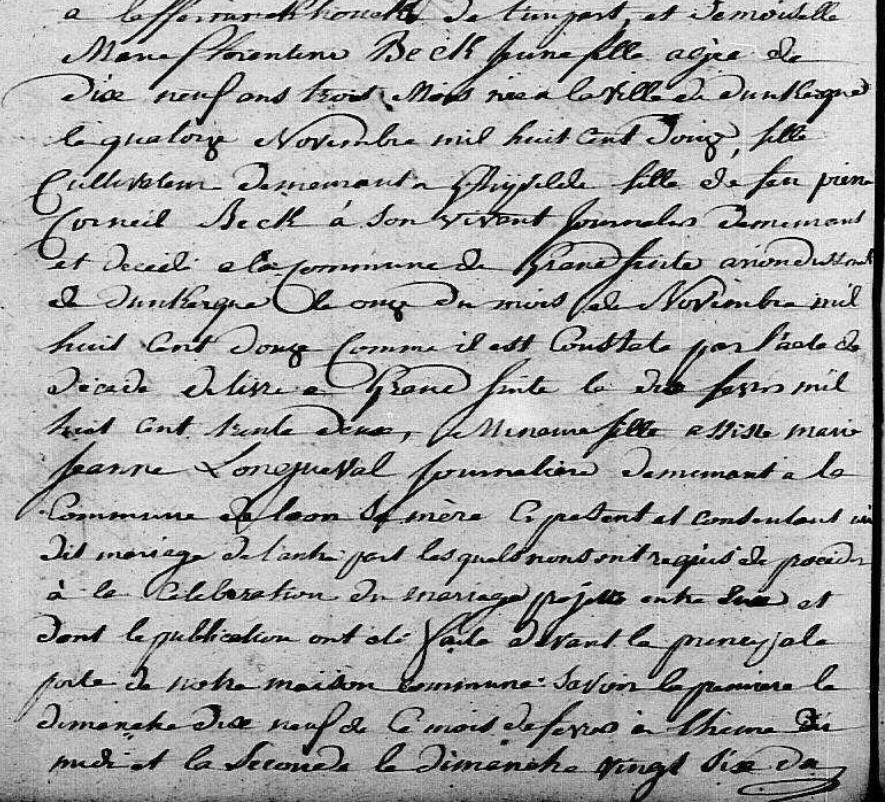 de l'un part, et Demoiselle
Marie florentine Beck jeune fille agée de
Dix neuf ans trois Mois née a la Ville de dunkerque
le quatorze Novembre mil huit cent Douze, fille
Cultivateur Demeurant a Ghyvelde fille de feu pierre
Corneil Beck à Son vivant Journalier Demeurant
et decedé a la Commune de Grande Sinte
de Dunkerque le onze du mois de Novembre mil
huit Cent douze Comme il est Constaté par l'acte de
Décede delivré a Grand Sinte le dix fevrier mil
huit cent trente deux, Mineure fille assisté marie
Jeanne Longueval Journalière demeurant a la
Commune de loon Sa mère Cy présent et consentant au
dit mariage de l'autre part lesquels nous ont requis de procéder
à la Celebration du mariage projetté entre Eux et
dont la publication ont été faite devant la principale
porte de notre maison commune Savoir la premiere le
dimanche dix neuf de Ce mois de fevrier a l'heure de
midi et la Seconde le dimanche vingt Six du